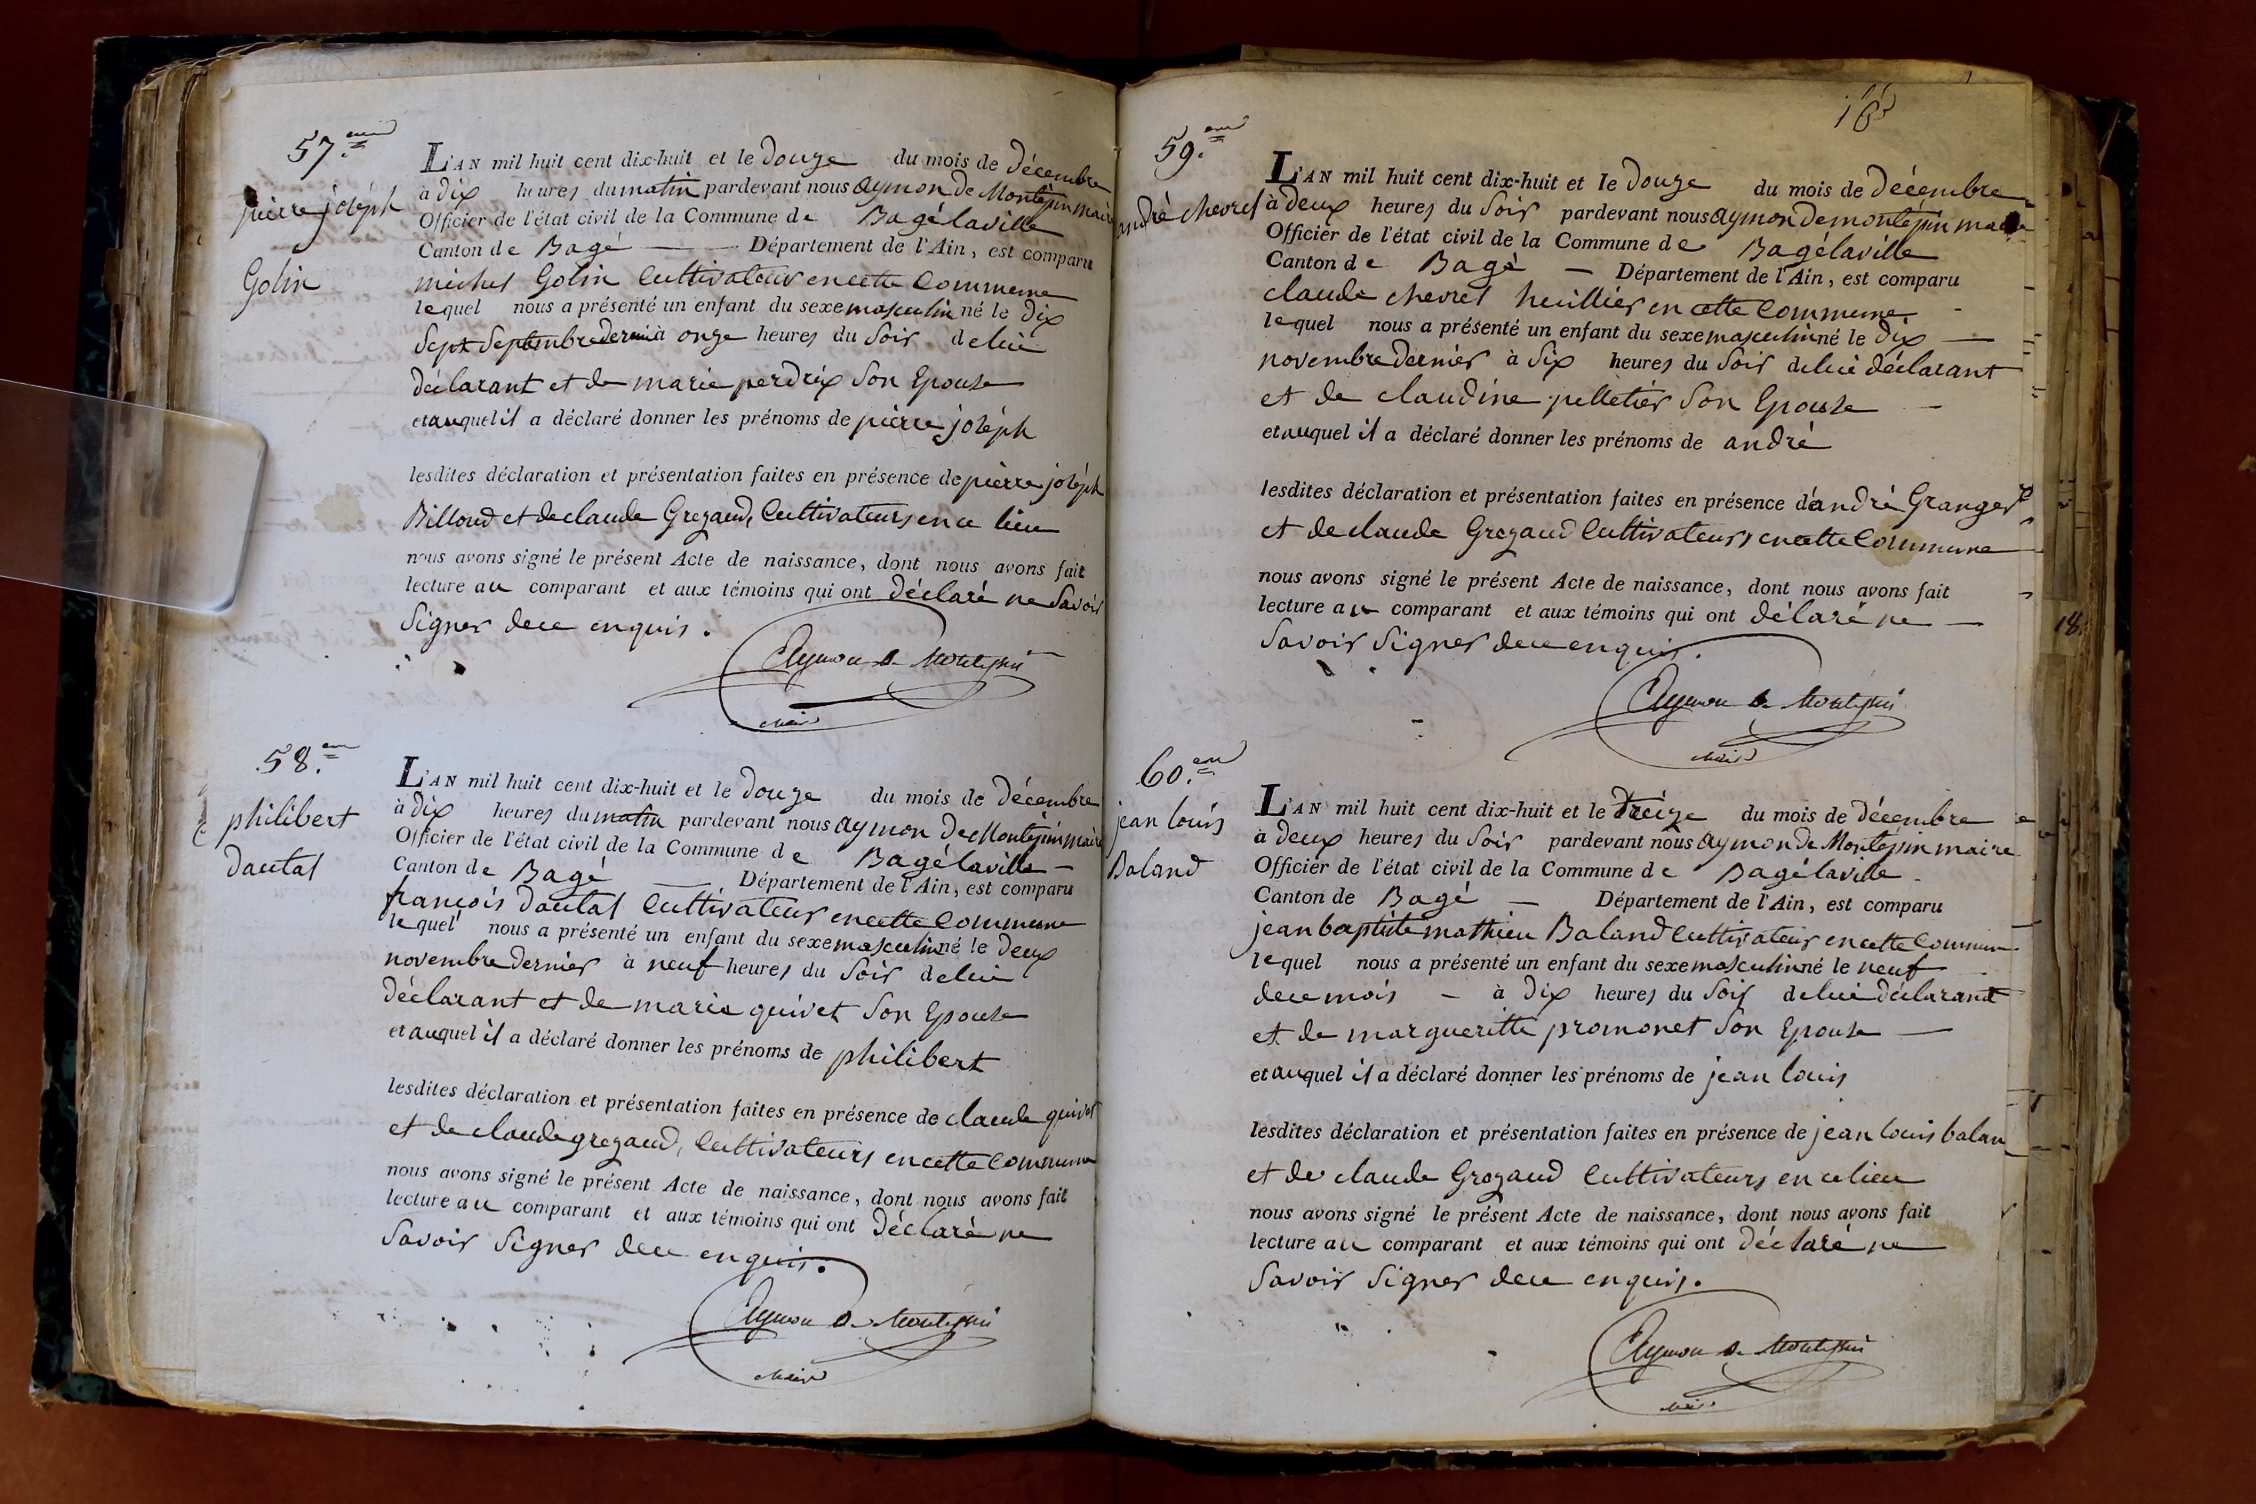 57.eme
pierre joséph
Golin
L'AN mil huit cent dix-huit et le douze du mois de décembre
à dix heures du matin pardevant nous aymon de Montépin maire
Officier de l'état civil de la Commune de Bagé laville
Canton de Bagé — Département de l'Ain, est comparu
michel Golin Cultivateur en cette Commune
lequel nous a présenté un enfant du sexe masculin né le dix
Sept Septembre dernier à onze heures du Soir de lui
déclarant et de marie perdrix Son Epouse
et auquel il a déclaré donner les prénoms de pierre joséph
lesdites déclaration et présentation faites en présence de pierre joséph
Billoud et de claude Grezaud, Cultivateurs en ce lieu
nous avons signé le présent Acte de naissance, dont nous avons fait
lecture au comparant et aux témoins qui ont déclaré ne Savoir
Signer de ce enquis.
Aymon de Montépin
Maire
58.eme
philibert
dautal
L'AN mil huit cent dix-huit et le douze du mois de décembre
à dix heures du matin pardevant nous aymon de Montépin maire
Officier de l'état civil de la Commune de Bagé laville —
Canton de Bagé — Département de l'Ain, est comparu
françois dautal Cultivateur en cette Commune
lequel nous a présenté un enfant du sexe masculin né le deux
novembre dernier à neuf heures du Soir de lui
déclarant et de marie quivet Son Epouse
et auquel il a déclaré donner les prénoms de philibert
lesdites déclaration et présentation faites en présence de claude quivet
et de claude grezaud, Cultivateurs en cette Commune
nous avons signé le présent Acte de naissance, dont nous avons fait
lecture au comparant et aux témoins qui ont déclaré ne
Savoir Signer de ce enquis.
Aymon de Montépin
Maire
59.eme
andré chevrel
L'AN mil huit cent dix-huit et le douze du mois de décembre
à deux heures du Soir pardevant nous aymon de montépin maire
Officier de l'état civil de la Commune de Bagé laville
Canton de Bagé — Département de l'Ain, est comparu
claude chevrel huillier en cette Commune
lequel nous a présenté un enfant du sexe masculin né le dix —
novembre dernier à Six heures du Soir de lui déclarant
et de claudine pelletier Son Epouse —
et auquel il a déclaré donner les prénoms de andré
lesdites déclaration et présentation faites en présence d'andré Granger
et de claude Grezaud Cultivateurs en cette Commune
nous avons signé le présent Acte de naissance, dont nous avons fait
lecture au comparant et aux témoins qui ont déclaré ne —
Savoir Signer de ce enquis.
Aymon de Montépin
Maire
60.eme
jean louis
Baland
L'AN mil huit cent dix-huit et le treize du mois de décembre
à deux heures du Soir pardevant nous aymon de Montépin maire
Officier de l'état civil de la Commune de Bagé laville
Canton de Bagé — Département de l'Ain, est comparu
jean baptiste mathieu Baland Cultivateur en cette Commune
lequel nous a présenté un enfant du sexe masculin né le neuf
de ce mois — à dix heures du Soir de lui déclarant
et de margueritte promonet Son Epouse —
et auquel il a déclaré donner les prénoms de jean louis
lesdites déclaration et présentation faites en présence de jean louis balan
et de claude Grozaud Cultivateurs en ce lieu
nous avons signé le présent Acte de naissance, dont nous avons fait
lecture au comparant et aux témoins qui ont déclaré ne
Savoir Signer de ce enquis.
Aymon de Montépin
Maire
18